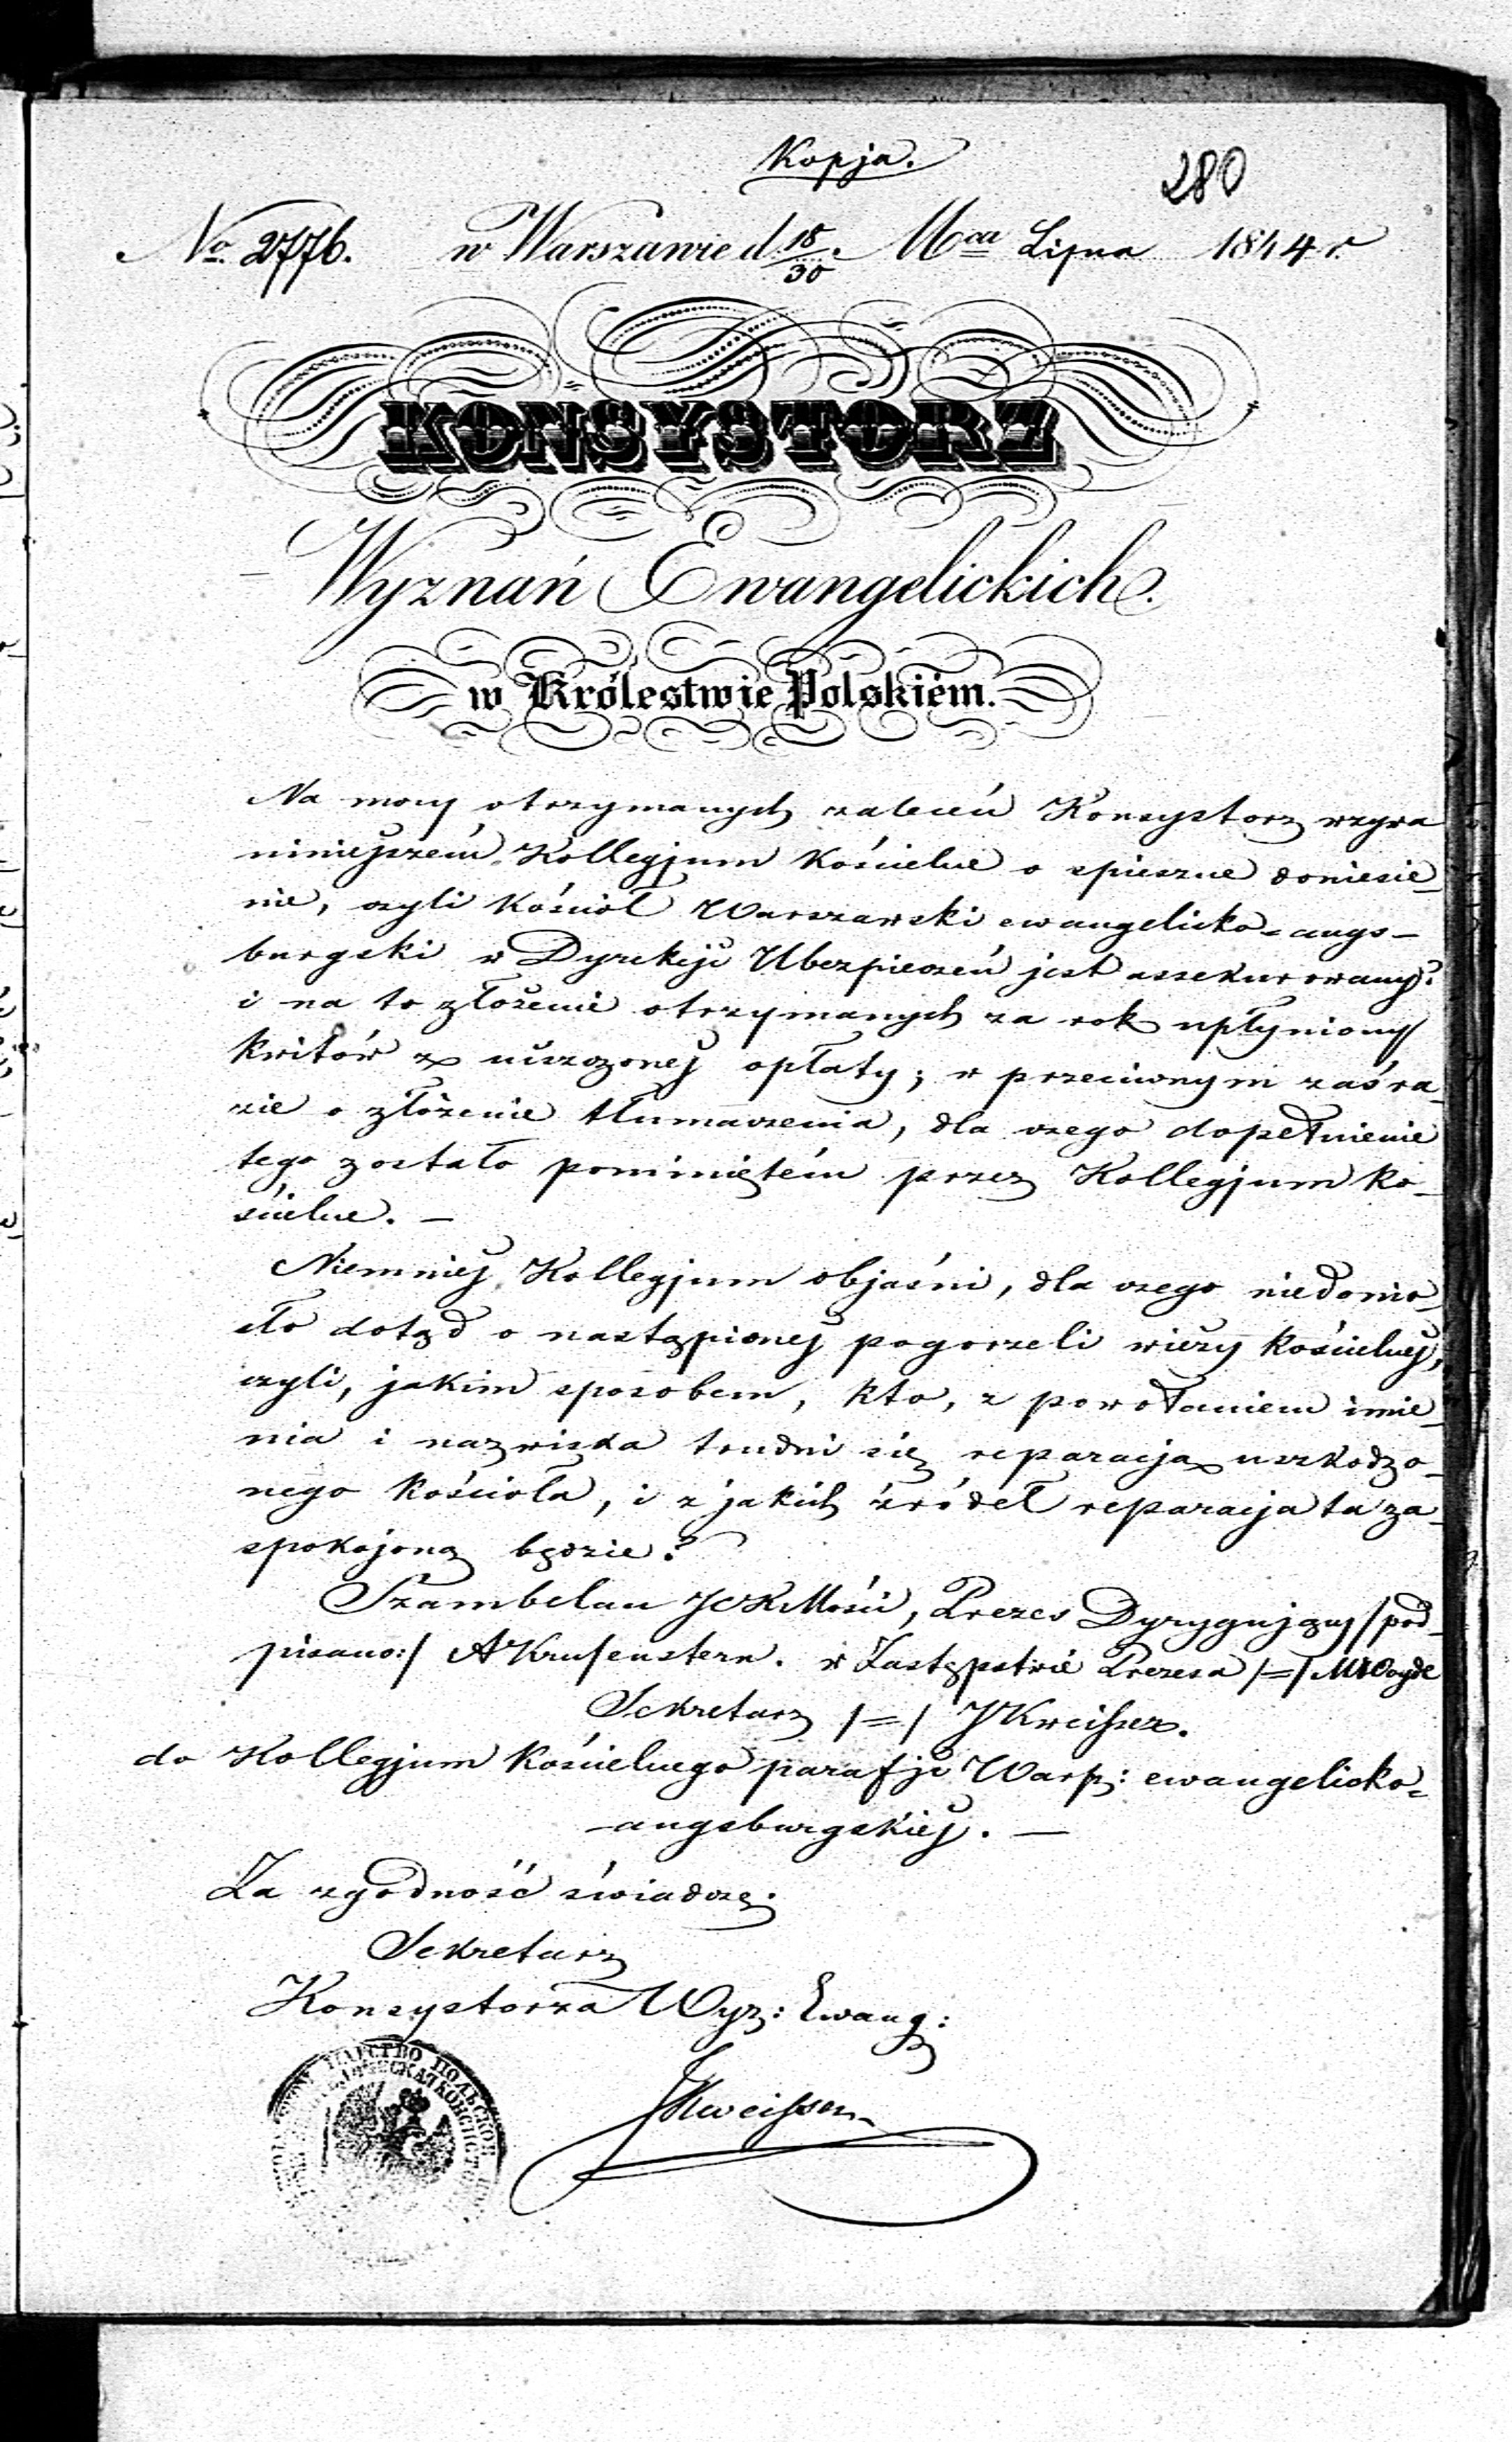 Kopja.
280
No. 2776. w Warszawie d. 18/30. Mca Lipca 1844 r.
KONSYSTORZ
Wyznań Ewangelickich
w Królestwie Polskiém.
Na mocy otrzymanych zaleceń Konsystorz wzywa
niniejszém Kollegjum Kościelne o spieszne doniesie-
nie, czyli Kościół Warszawski ewangelicko-augs-
burgski w Dyrekcji Ubezpieczeń jest assekurowany?
i na to złożenie otrzymanych za rok upłyniony
kwitów z uiszczonej opłaty; w przeciwnym zaś ra-
zie o złożenie tłumaczenia, dla czego dopełnienie
tego zostało pominiętém przez Kollegjum Ko-
ścielne. —
Niemniej Kollegjum objaśni, dla czego niedonio-
sło dotąd o nastąpionej pogorzeli wieży kościelnej,
czyli, jakim sposobem, kto, z powołaniem imie-
nia i nazwiska trudni się reparacją uszkodzo-
nego kościoła, i z jakich źródeł reparacja ta za-
spokojoną będzie?
Szambelan JCKMości, Prezes Dyrygujący /pod-
pisano:/ AKrusenstern. w Zastępstwie Prezesa /=/ MWoyde
Sekretarz /=/ JKweisser.
do Kollegjum Kościelnego parafji Warsz: ewangelicko-
-augsburgskiej. —
Za zgodność świadczę:
Sekretarz
Konsystorza Wyz: Ewang:
JKweisser
ЦАРСТВО ПОЛЬСКОЕ